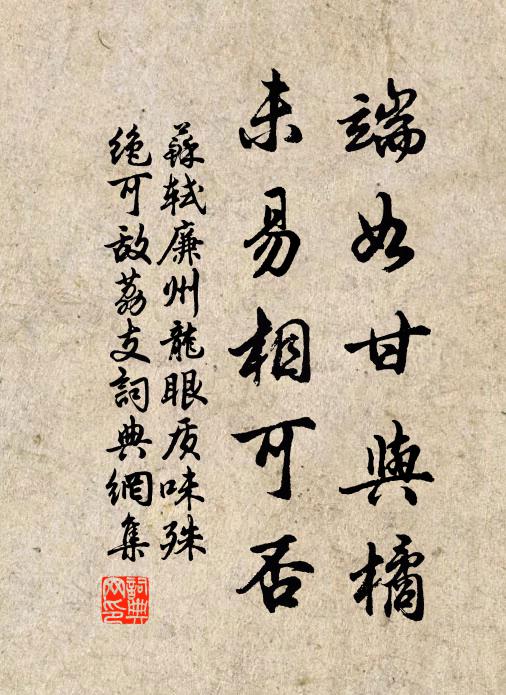 端如甘與橘
未易相可否
蘇軾廉州龍眼质味殊
絶可敌荔支詞典網集
詞典
网印